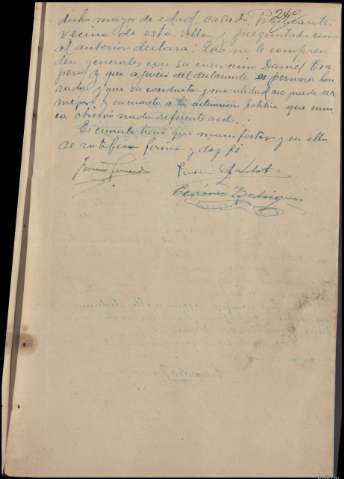 dicho mayor de edad, casado,
vecino de esta villa y preguntado como
el anterior declara: Que no le compren
den generales con su convecino Daniel
y que a juicio del declarante es persona hon
rada y que su conducta y moralidad no puede ser
mejor y en cuanto a su actuación política que nun
ca observó nada referente a ed.
Es cuanto tiene que manifestar y en ello
se ratifica firma y doy fé